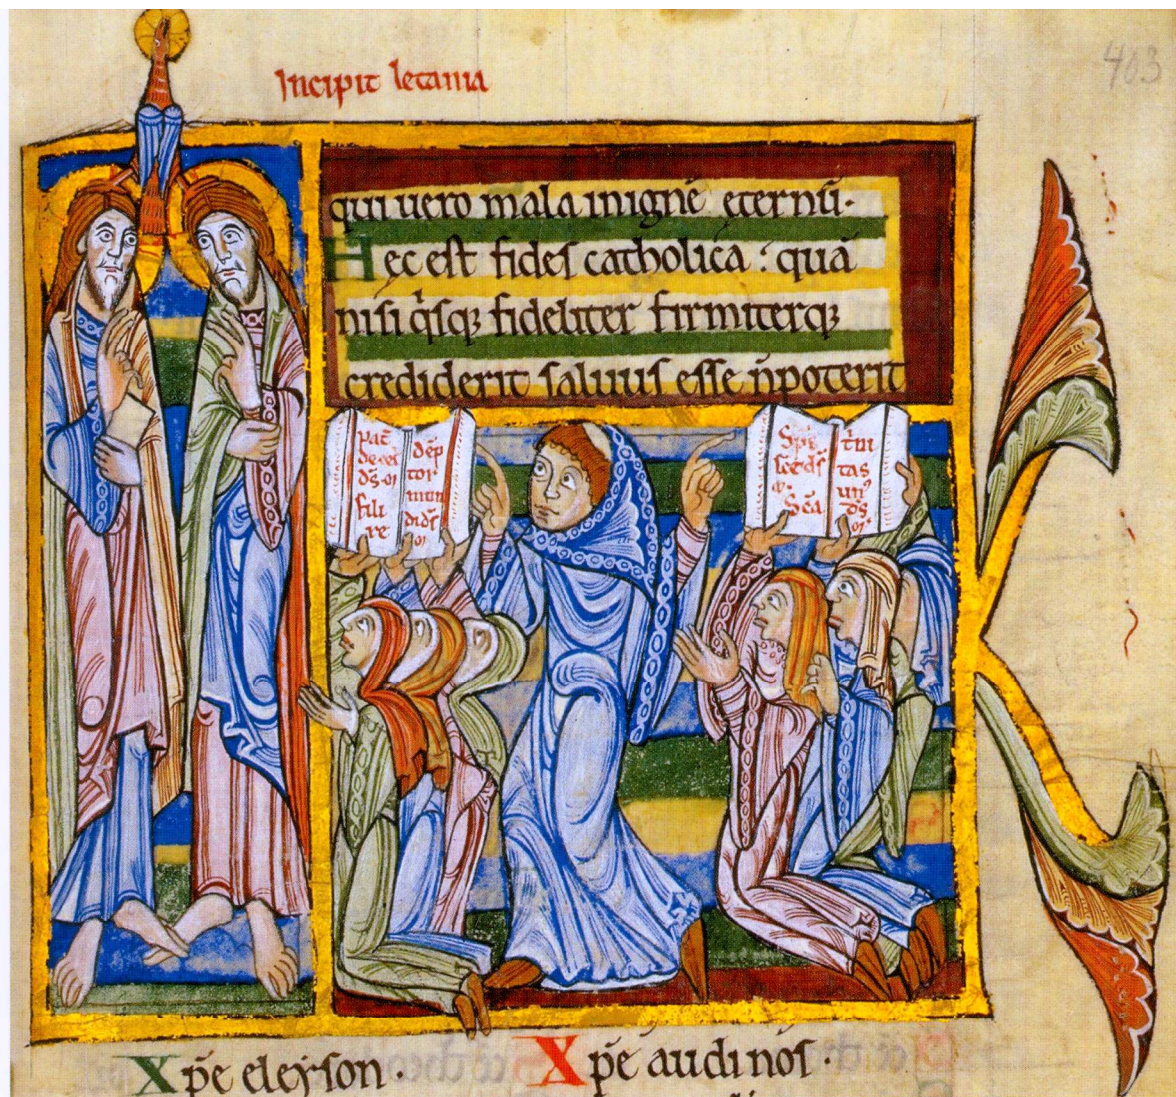 Incipit letania
403
qui uero mala in ignē eternū.
Hec est fides catholica : quā
nisi q̇sq₃ fideliter firmiterq₃
crediderit saluus esse n̄ poterit
pat̄
de cel
d̄s·
fili
re
dēp
tor
mun
di d̄s
Sp̄c
sc̄e d̄s
Sc̄a
t̄ni
tas
un⁹
d̄s
Xp̄e eleyson .
Xp̄e audi nos .